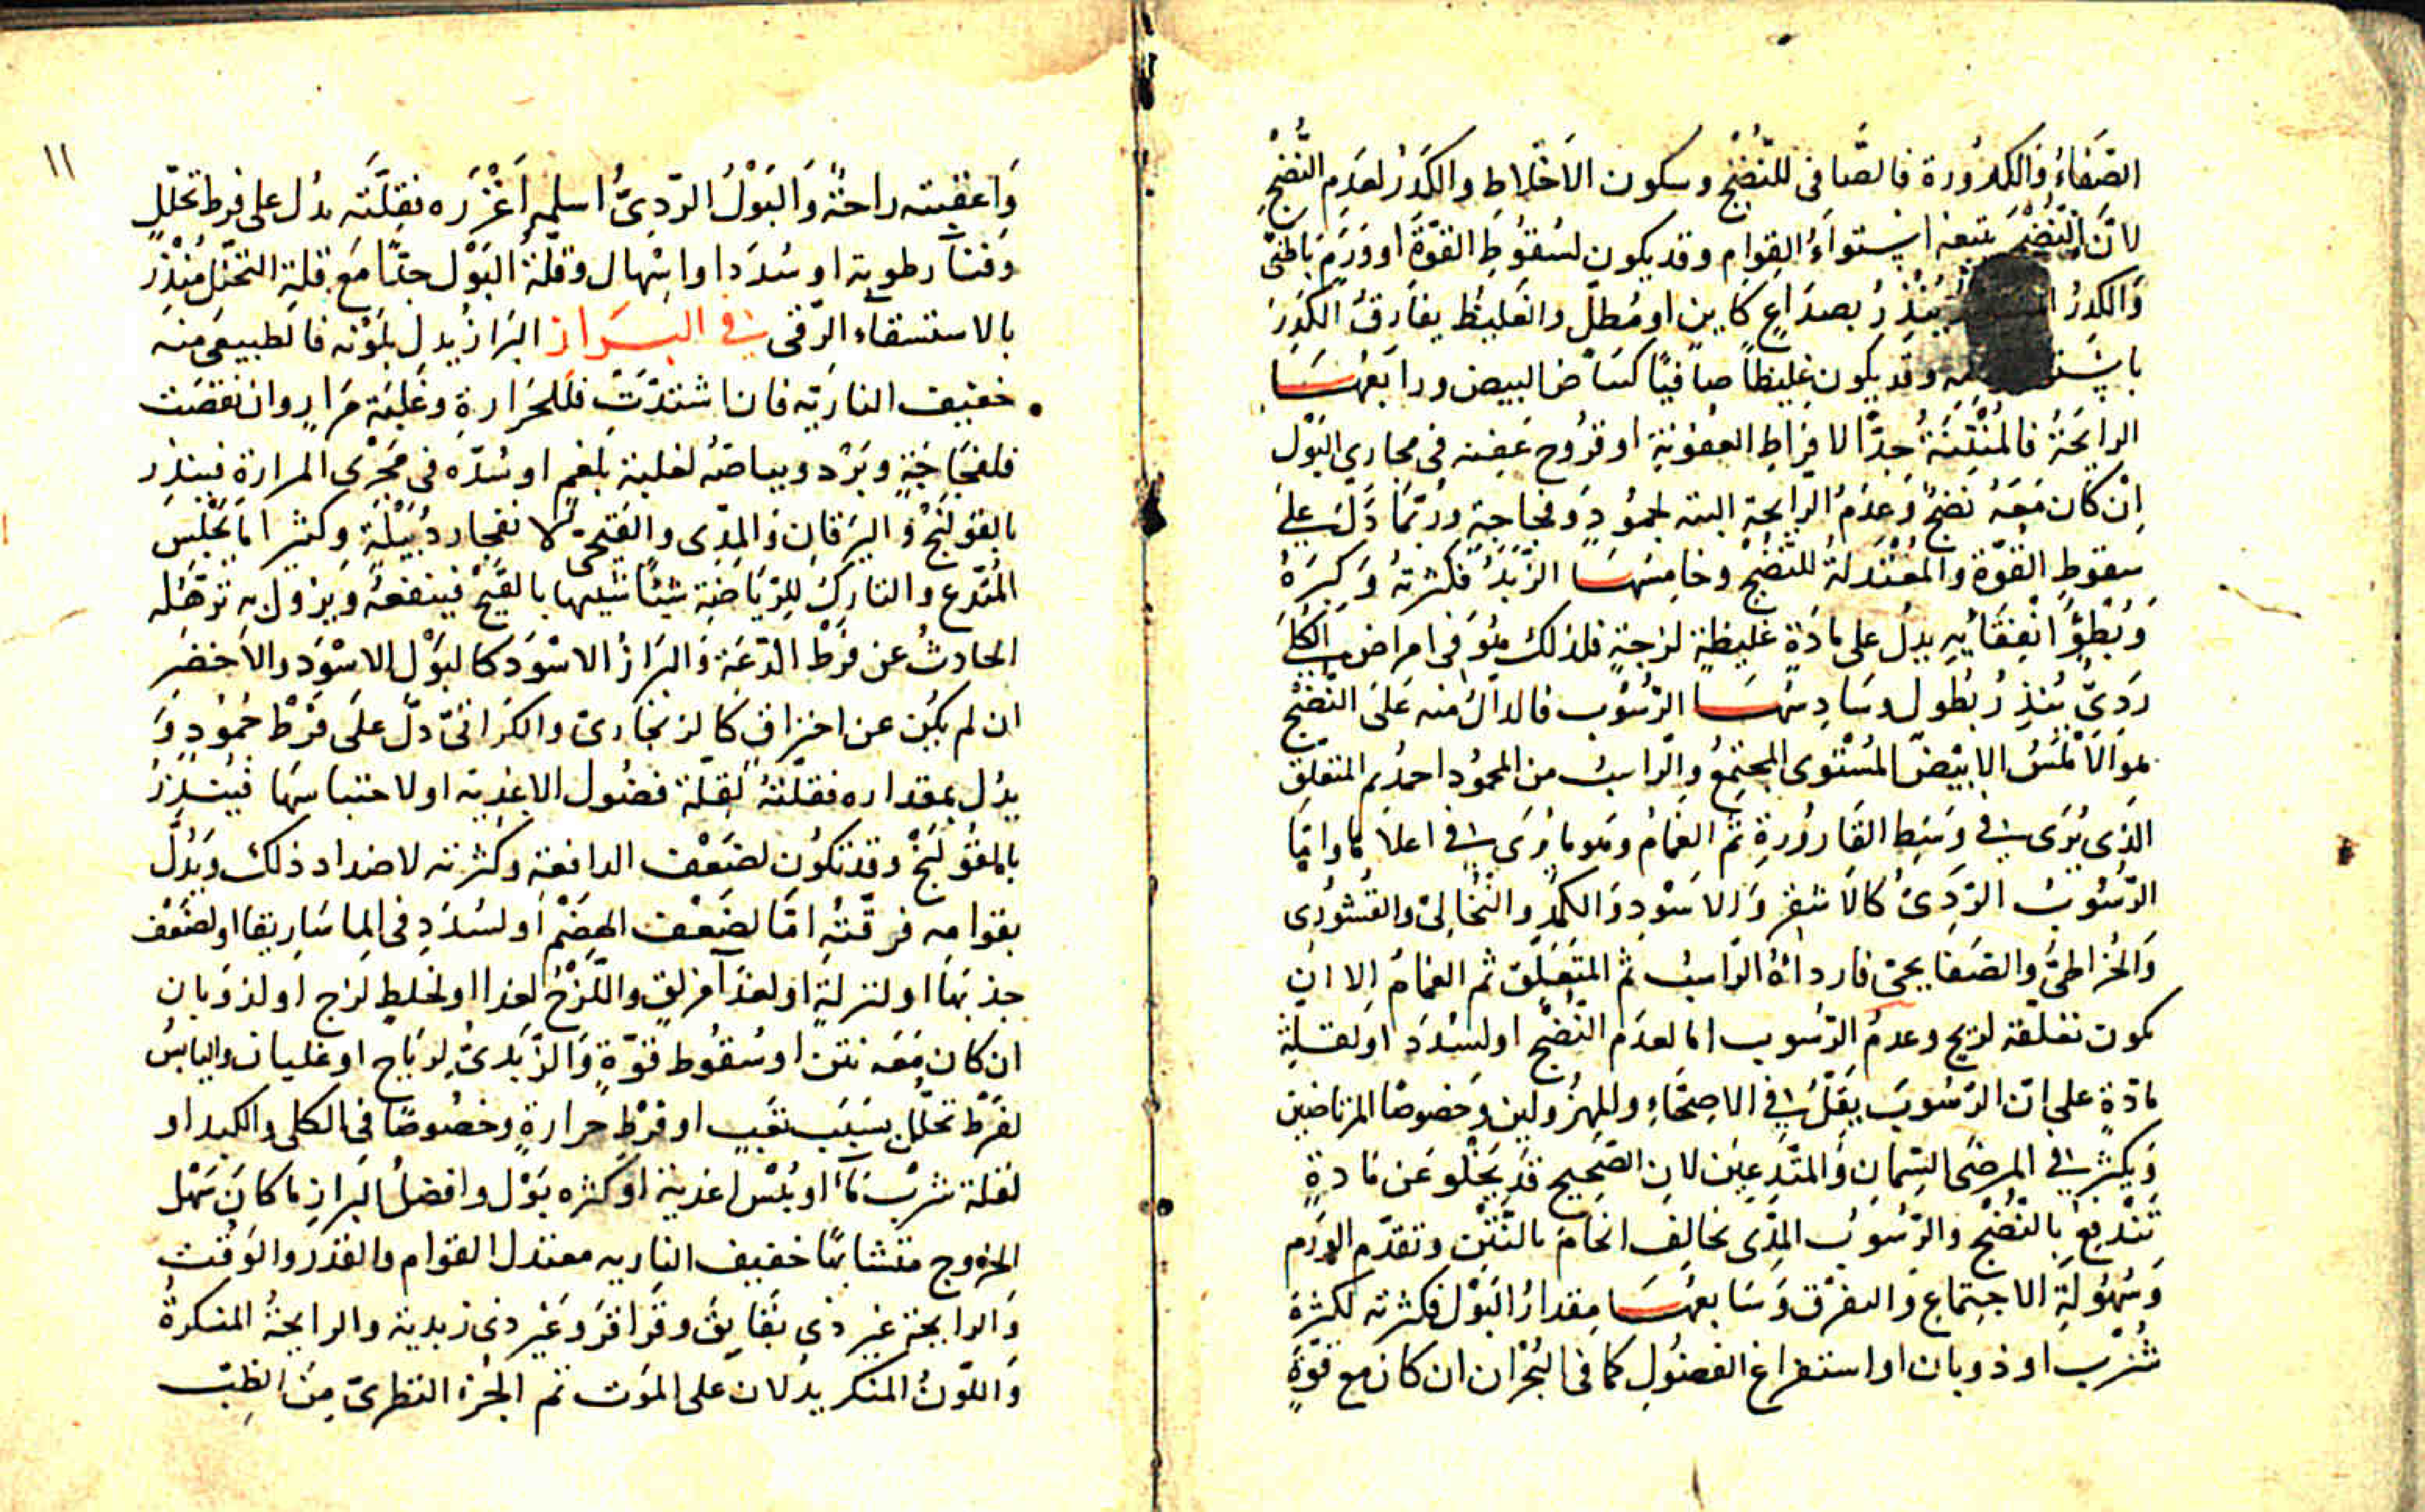 الصَفاءُ وَالكدُورة فالصَّافى للنُضْجِ وسكون الاَخْلاط والكَدَرُ لعَدَم النُّضْجِ
لانَّ النُّضْجَ يتبعه اِستواءُ القِوام وقد يكون لسُقوُطِ القوَّةَ او وَرَمٍ بَاطنىّ
وَالكدِرُ يُنْذِرُ بصدَاعٍ كاينٍ او مُطلّ والغليظُ يفارقُ الكَدِرَ
وقد يكون غليظاً صافيًا كبَيَاض البيض ورابعُهَا
الرايحَةُ فالمُنْتِنَةُ جِدّاً لافراطِ العفونةِ او قرُوح عَفِنة فى مجارى البَوْل
اِنْ كان مَعَهُ نَضجٌ وَعدَمُ الرايحةِ البتة لجمُودٍ وَفجاجةٍ ورُبّمَا دَلّ عَلَى
سقوطِ القوّة والمُعْتدلةُ للنُضْجِ وخامِسُهَا الزَّبَدُ فكثرتهُ وَكِبَرُهُ
وَبُطؤُ انفِقَائِهِ يدلُ على مادّةٍ غليظةٍ لزجةٍ فلذلك هُوَ فى امراض الكُلَى
رَدِىٌّ يُنذِرُ بطول وسَادِسُهَا الرُّسُوب فالدالُ منه عَلَى النُّضْجِ
هو الاَمْلَسُ الابيْضُ المُسْتوى المجتمعُ والرّاسبُ من المحمُود احمدُ ثم المتعلّق
الذى يُرَى فى وَسَطِ القَارورةِ ثم الغَمَامُ وهو ما يُرَى فى اعلاها وامّا
الرّسُوبُ الرَدِىُ كالاَشقر وَالاَسْوَد وَالكَمِدِ والنُّخالىّ والقُشُورى
وَالخُراطىّ والصَفايحىّ فارداهُ الرّاسبُ ثم المتَعَلِّق ثم الغمامُ الا ان
يكون تعلّقه لريح وعدمُ الرّسُوب اما لعدَم النُّضْجِ او لسُدَد او لقلةِ
مادّةٍ على انّ الرّسُوبَ يَقِلُّ فى الاصِحّاءِ وللمهزُولين وخصوصًا المرتاضين
وَيكثر فى المرضَى السِّمانِ والمتّدِعين لان الصَّحيح قد يَخْلو عَن مَادةٍ
تَنْدَفِعُ بالنُّضْجِ والرّسُوبُ المِدّى يخالِفُ الخامَ بالنَّتْنِ وتقدّم الورَم
وَسُهُولَةِ الاجتماع والتفرّق وَسَابعُهَا مِقدارُ البَوْل فكثرته لكثرة
شُرْب او ذوبان او استفراغ الفضُول كما فى البُحْران ان كان مع قوّةٍ
١١
وَاعقبته راحةٌ وَالبَوْلُ الرّدِىُّ اسلمه اَغْزَرُه فقِلَّتَه يدُل على فرط تحلّلٍ
وفنآ رطوبة او سُدَد او اسْهال وقلّةُ البَوْل جدًّا مَع قلةِ التحلّل مُنْذِرٌ
بالاستسقاء الزّقى فى البــراز البَرَازُ يُدل بلَوْنه فالطبيعىُ منه
خفيف الناريّه فان اشتدّتْ فللحَرارةِ وغلبَة مَرارٍ وان نقصَت
فلفجَاجَةٍ وبَرْد وبياضهُ لغلبة بلغم او سُدّه فى مَجْرَى المرارة فينذِر
بالقولَنجْ وَاليَرقانِ وَالمِدّى والقَيحىّ لانفجار دُبَيْلَةٍ وكثيرا ما يَجْلِسُ
المُتّدع والتارِكُ للرِّيَاضَةِ شيْئًا شبيها بالقَيْح فينفعهُ ويزول به تَرهُّله
الحادثُ عن فرْط الدّعَة وَالبَرَازُ الاسْوَد كالبَوْل الاسْوَد والاَخضَر
ان لم يكُن عن احتراقٍ كالزنجارىّ والكرّاثىّ دلّ علَى فَرْطْ جُمودٍ وَ
يدُل بمقداره فقلّتهُ لقلّة فضُول الاغذية او لاحتباسهَا فيُنذِرُ
بالقوُلَنجْ وقد تكُون لضَعْف الدافعة وكثرته لاضداد ذلك وَيَدُلُّ
بقوامه فرقّتُه امّا لضَعْف الهَضْم او لسُدَدٍ فى الماسَاريقا او لضَعْف
جذبهَا او لنزلةٍ او لغذآ مزلقٍ واللّزجُ لغذا او لخلط لزج او لذوَبان
ان كان مَعَه نتن او سُقوُط قوّةٍ وَالزَّبَدىُّ لرِيَاح او غليان واليابسُ
لفَرْط تحلّل بسَبَب تعَبٍ او فَرْط حرارةٍ وخصُوصًا فى الكلى والكبد او
لقلة شرْب مَآءٍ او يُبْسِ اغذية او كثره بَوْل وافضلُ البَرازِ ما كانَ سَهْل
الخرُوج متشابهًا خفيف الناريه معتدل القوام والقدر والوَقت
وَالرايحة غير ذى بَقابِق وقَراقرَ وَغير ذى زبدية والرايحةُ المنكرةُ
وَاللّونُ المنكر يدُلان على المَوت تم الجُزءُ النظرىّ مِنَ الطِبّ